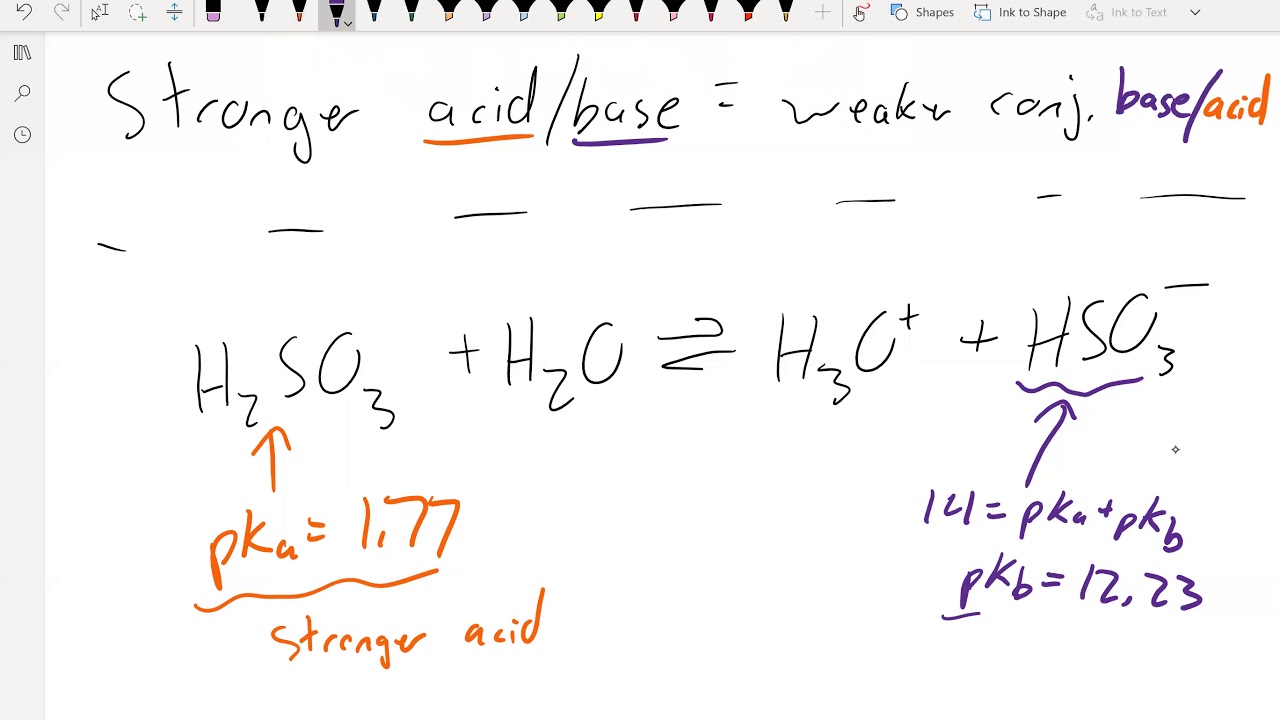 Shapes Ink to Shape Ink to Text
Stronger acid/base = weaker conj. base/acid
H₂SO₃ + H₂O ⇌ H₃O⁺ + HSO₃⁻
pKa = 1.77
stronger acid
14 = pKa + pKb
pKb = 12.23